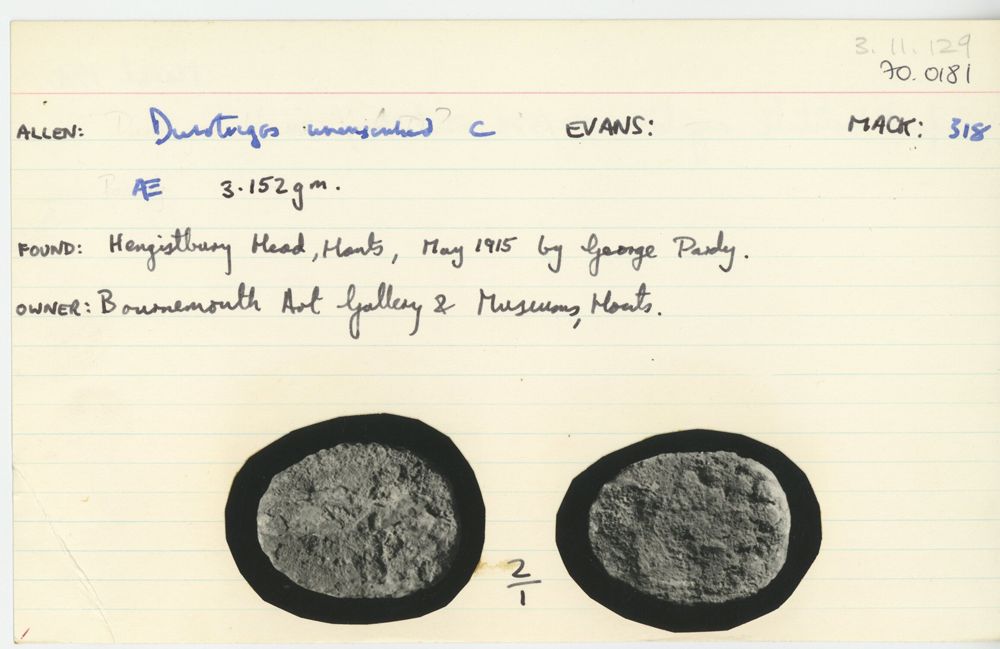 3. 11. 129
70.0181
ALLEN: Durotriges uninscribed C EVANS: MACK: 318
Æ 3.152gm.
FOUND: Hengistbury Head, Hants, May 1915 by George Pardy.
OWNER: Bournemouth Art Gallery & Museums, Hants.
2
1